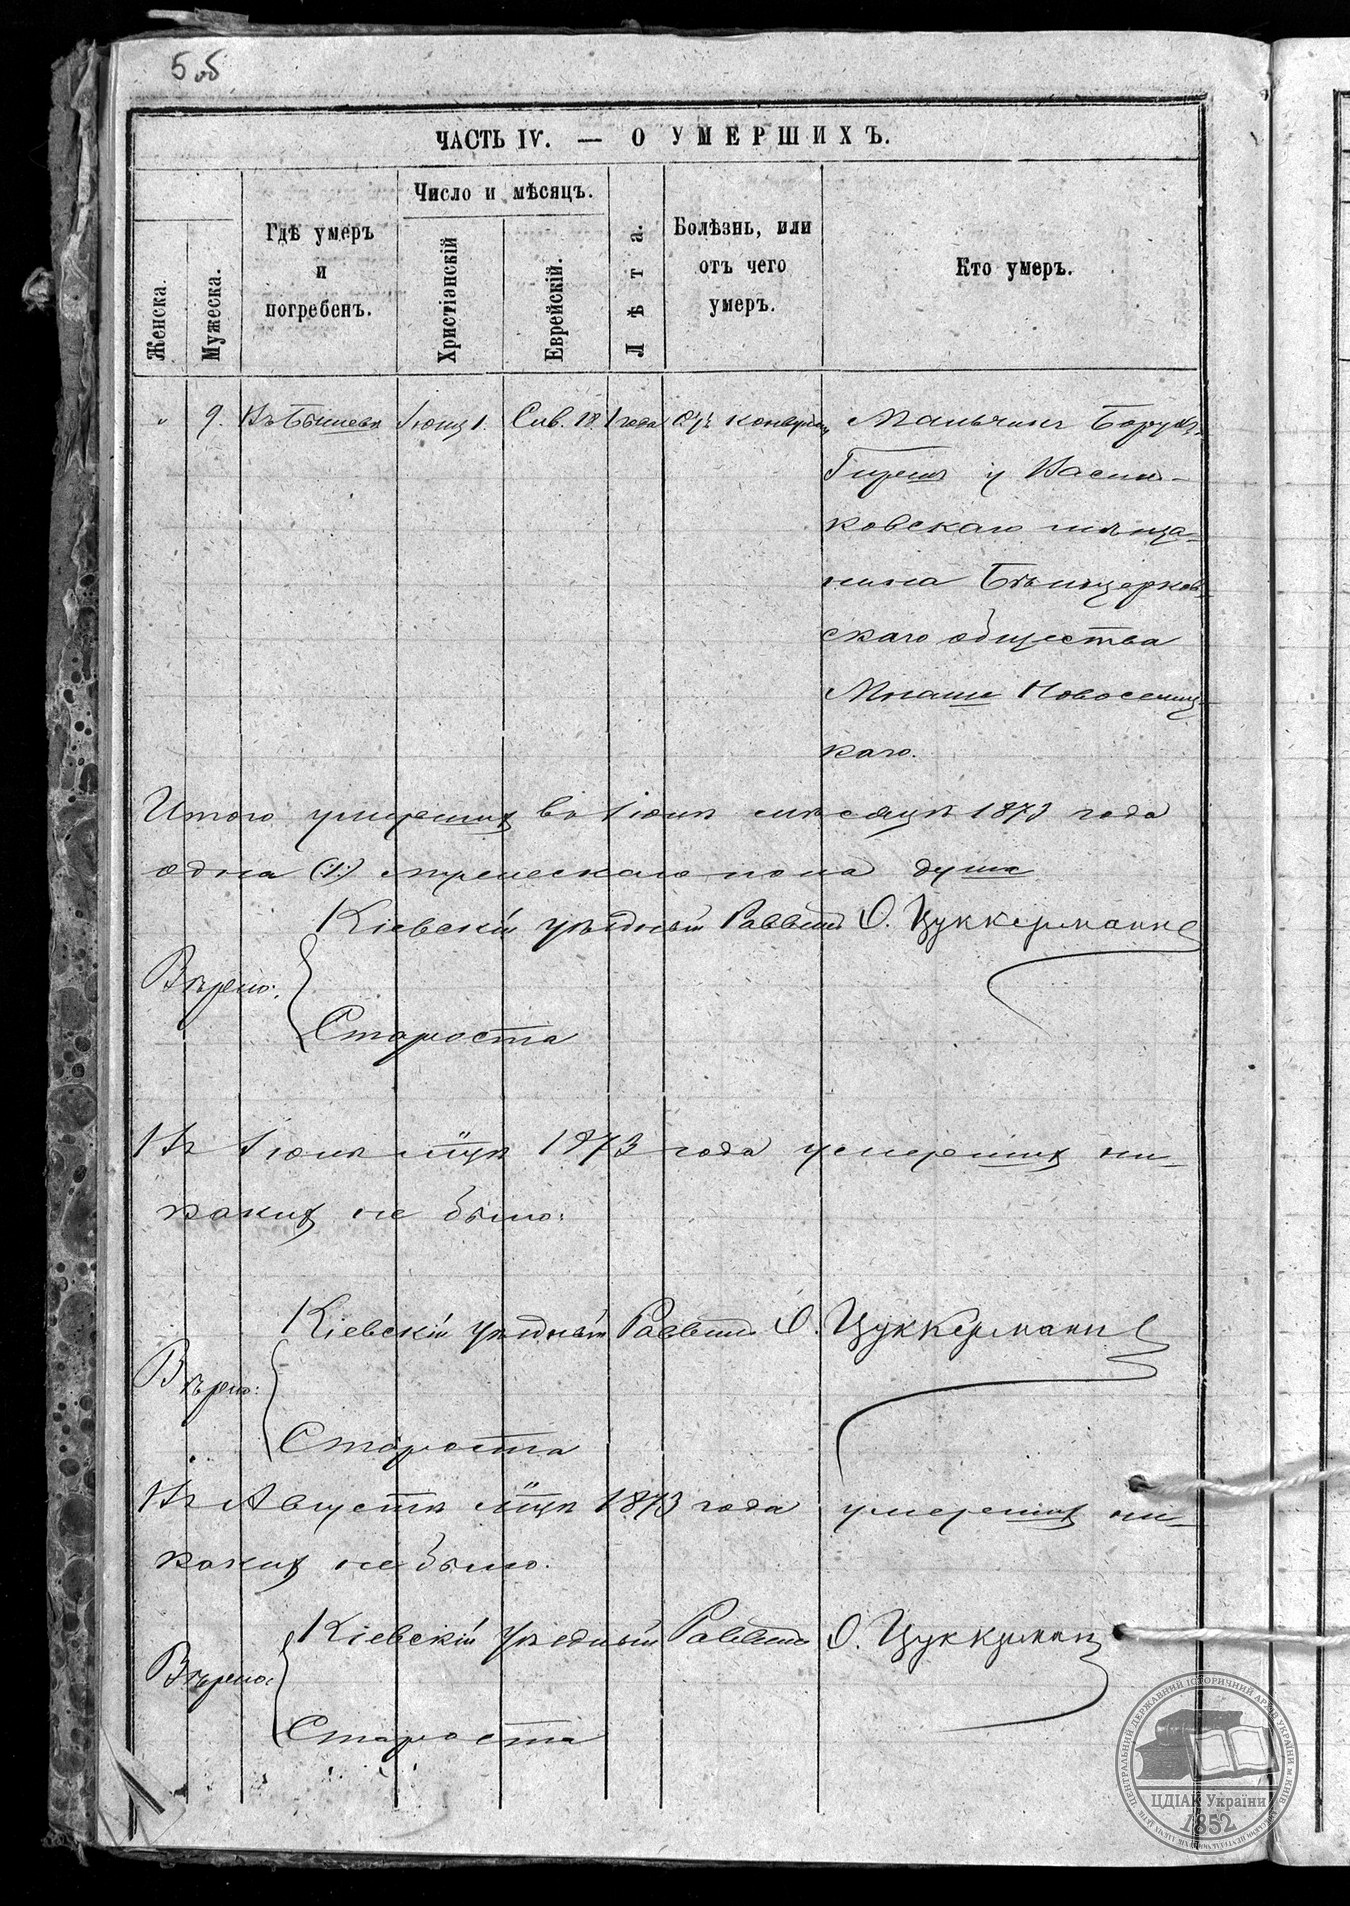 5 об
ЧАСТЬ IV. — О УМЕРШИХЪ.
Женска.
Мужеска.
Гдѣ умеръ
и
погребенъ.
Число и мѣсяцъ.
Христіанскій
Еврейскій.
Лѣта.
Болѣзнь, или
отъ чего
умеръ.
Кто умеръ.
" 9. Іюня 1. Сив. 18. 1 года Отъ Мальчикъ Борухъ-
Гиршъ у Василь-
ковскаго мѣща-
нина Бѣлоцерков-
скаго общества
Мнаше Новоселиц-
каго.
Итого умершихъ въ Іюнѣ мѣсяцѣ 1873 года
одна (1) мужескаго пола душа
Кіевскій уѣздный Раввинъ О. Цуккерманъ
Вѣрно:
Староста
Въ Іюлѣ мцѣ 1873 года умершихъ ни-
какихъ не было:
Кіевскій уѣздный Раввинъ О. Цуккерманъ
Вѣрно:
Староста
Въ Августѣ мцѣ 1873 года умершихъ ни-
какихъ не было.
Кіевскій уѣздный Раввинъ О. Цуккерманъ
Вѣрно:
Староста
ЦЕНТРАЛЬНИЙ ДЕРЖАВНИЙ ІСТОРИЧНИЙ АРХІВ УКРАЇНИ М.КИЇВ
ЦДІАК України
1852